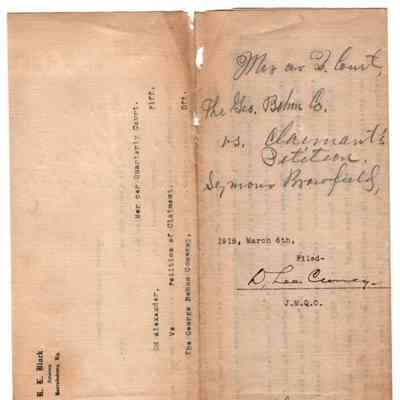 Mer co Q. Court,
The Geo. Bohn Co.
vs. Claimant's
Petition.
Seymour Brownfield,
1918, March 6th,
Filed-
D. Lee
J.M.Q.C.
Mercer Quarterly Court.
Ed Alexander, Plff.
Vs Petition of Claimant.
The George Bohon Company, Dft.
E. K. Black
Attorney
Harrodsburg, Ky.